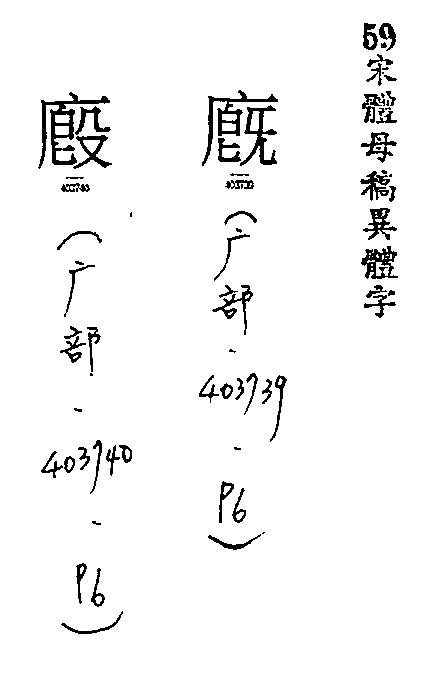 59宋體母稿異體字
廐
403739
(广部-403739-P6)
廄
403740
(广部-403740-P6)